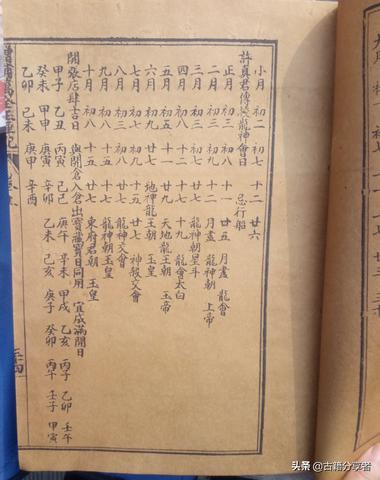 小月 初二 初七 十二 廿六
許真君傳授龍神會日 忌行船
正月 初三 初八 十一 廿五 月盡 龍會
二月 初三 初九 十二 月盡 龍神朝上帝
三月 初三 初七 廿七 龍神朝星斗
四月 初八 十二 十七 十九 龍會太白
五月 初五 十一 廿九 天地龍王朝玉帝
六月 初九 廿七 地神龍王朝玉皇
七月 初七 初九 十五 廿七 神殺交會
八月 初三 初八 廿七 龍神大會
九月 十一 十五 十九 龍神朝玉皇
十月 初八 十五 廿七 東府君朝玉皇
開張店肆吉日 與開倉入倉出寶藏寶日同用 宜成滿開日
甲子 乙丑 丙寅 己巳 庚午 辛未 甲戌 乙亥 丙子 己卯 壬午
癸未 甲申 庚寅 辛卯 乙未 己亥 庚子 癸卯 丙午 壬子 甲寅
乙卯 己未 庚申 辛酉
三十四
头条 @古籍分享者